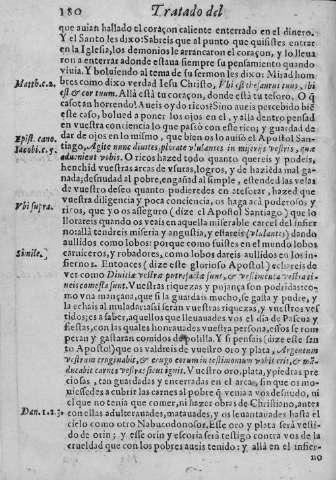 180 Tratado del
que auian hallado el coraçon caliente enterrado en el dinero.
Y el Santo les dixo: Sabreis que al punto que quisistes entrar
en la Iglesia, los demonios le arrancaron el coraçon, y lo lleua
ron a enterrar adonde estaua siempre su pensamiento quando
viuia. Y boluiendo al tema de su sermon les dixo: Mirad hom
Matth.c.2. bres como dixo verdad Iesu Christo, Vbi est thesaurus tuus, ibi
est & cor tuum. Allà està tu coraçon, donde està tu tesoro. O q̃
casotan horrendo! Aueis oydo ricos? Sino aueis percebido biẽ
este caso, bolued a poner los ojos en el, y alla dentro pensad
en vuestra conciencia lo que passò con este rico; y guardad de
Epist. cano. dar de ojos en lo mismo, que bien os lo auisò el Apostol San-
Iacobi.c.5. tiago, Agite nunc diuites, plorate vlulantes in miserijs vestris, quæ
aduenient vobis. O ricos hazed todo quanto quereys y podeis,
henchid vuestras arcas de vsuras, logros, y de hazienda mal ga-
nada; desnudad al pobre, engañad al simple, estended las velas
de vuestro deseo quanto pudieredes en atesorar, hazed que
vuestra diligencia y poca conciencia, os haga açà poderosos y
Vbi supra. ricos, que yo os asseguro (dize el Apostol Santiago) que lo
llorareis quando os veais en aquella miserable carcel del infier
no: allà tendreis miseria y angustia, y estareis (vlulantes) dando
aullidos como lobos: porque como fuistes en el mundo lobos
Simile. carniceros, y robadores, como lobos dareis aullidos en los in-
fiernos. Entonces (dize este glorioso Apostol) echareis de
ver como Diuitiæ vestræ putrefactæ sunt, & vestimenta vestra ti-
neis comesta sunt. Vuestras riquezas y pujança son podridas: co-
mo vna mançana, que si la guardais mucho, se gasta y pudre, y
la echais al muladar: assi seran vuestras riquezas, y vuestros ves
tidos; es a saber, aquellos que lleuauades vos el dia de Pascua y
fiestas, con las quales honrauades vuestra persona, essos se rom
peran y gastaran comidos de polilla. Y si pensais (dize este san
to Apostol) que os valdreis de vuestro oro y plata, Argentum
vestrum eruginabit, & erugo eorum in testimonium vobis erit, & mã
ducabit carnes vestras sicut ignis. Vuestro oro, plata, y piedras pre
ciosas, tan guardadas y encerradas en el arcas, sin que os mo-
uiessedes a cubrir las carnes al pobre q̃ venia a vos desnudo, ni
el que no tenia que comer, ni hazer obras de Christiano, antes
Dan.1.2.3. con ellas adulterauades, matauades, y os leuantauades hasta el
cielo como otro Nabucodonosor. Esse oro y plata serà vesti-
do de orin; y esse orin y escoria serà testigo contra vos de la
crueldad que con los pobres aueis tenido: y allà en el infier-
no